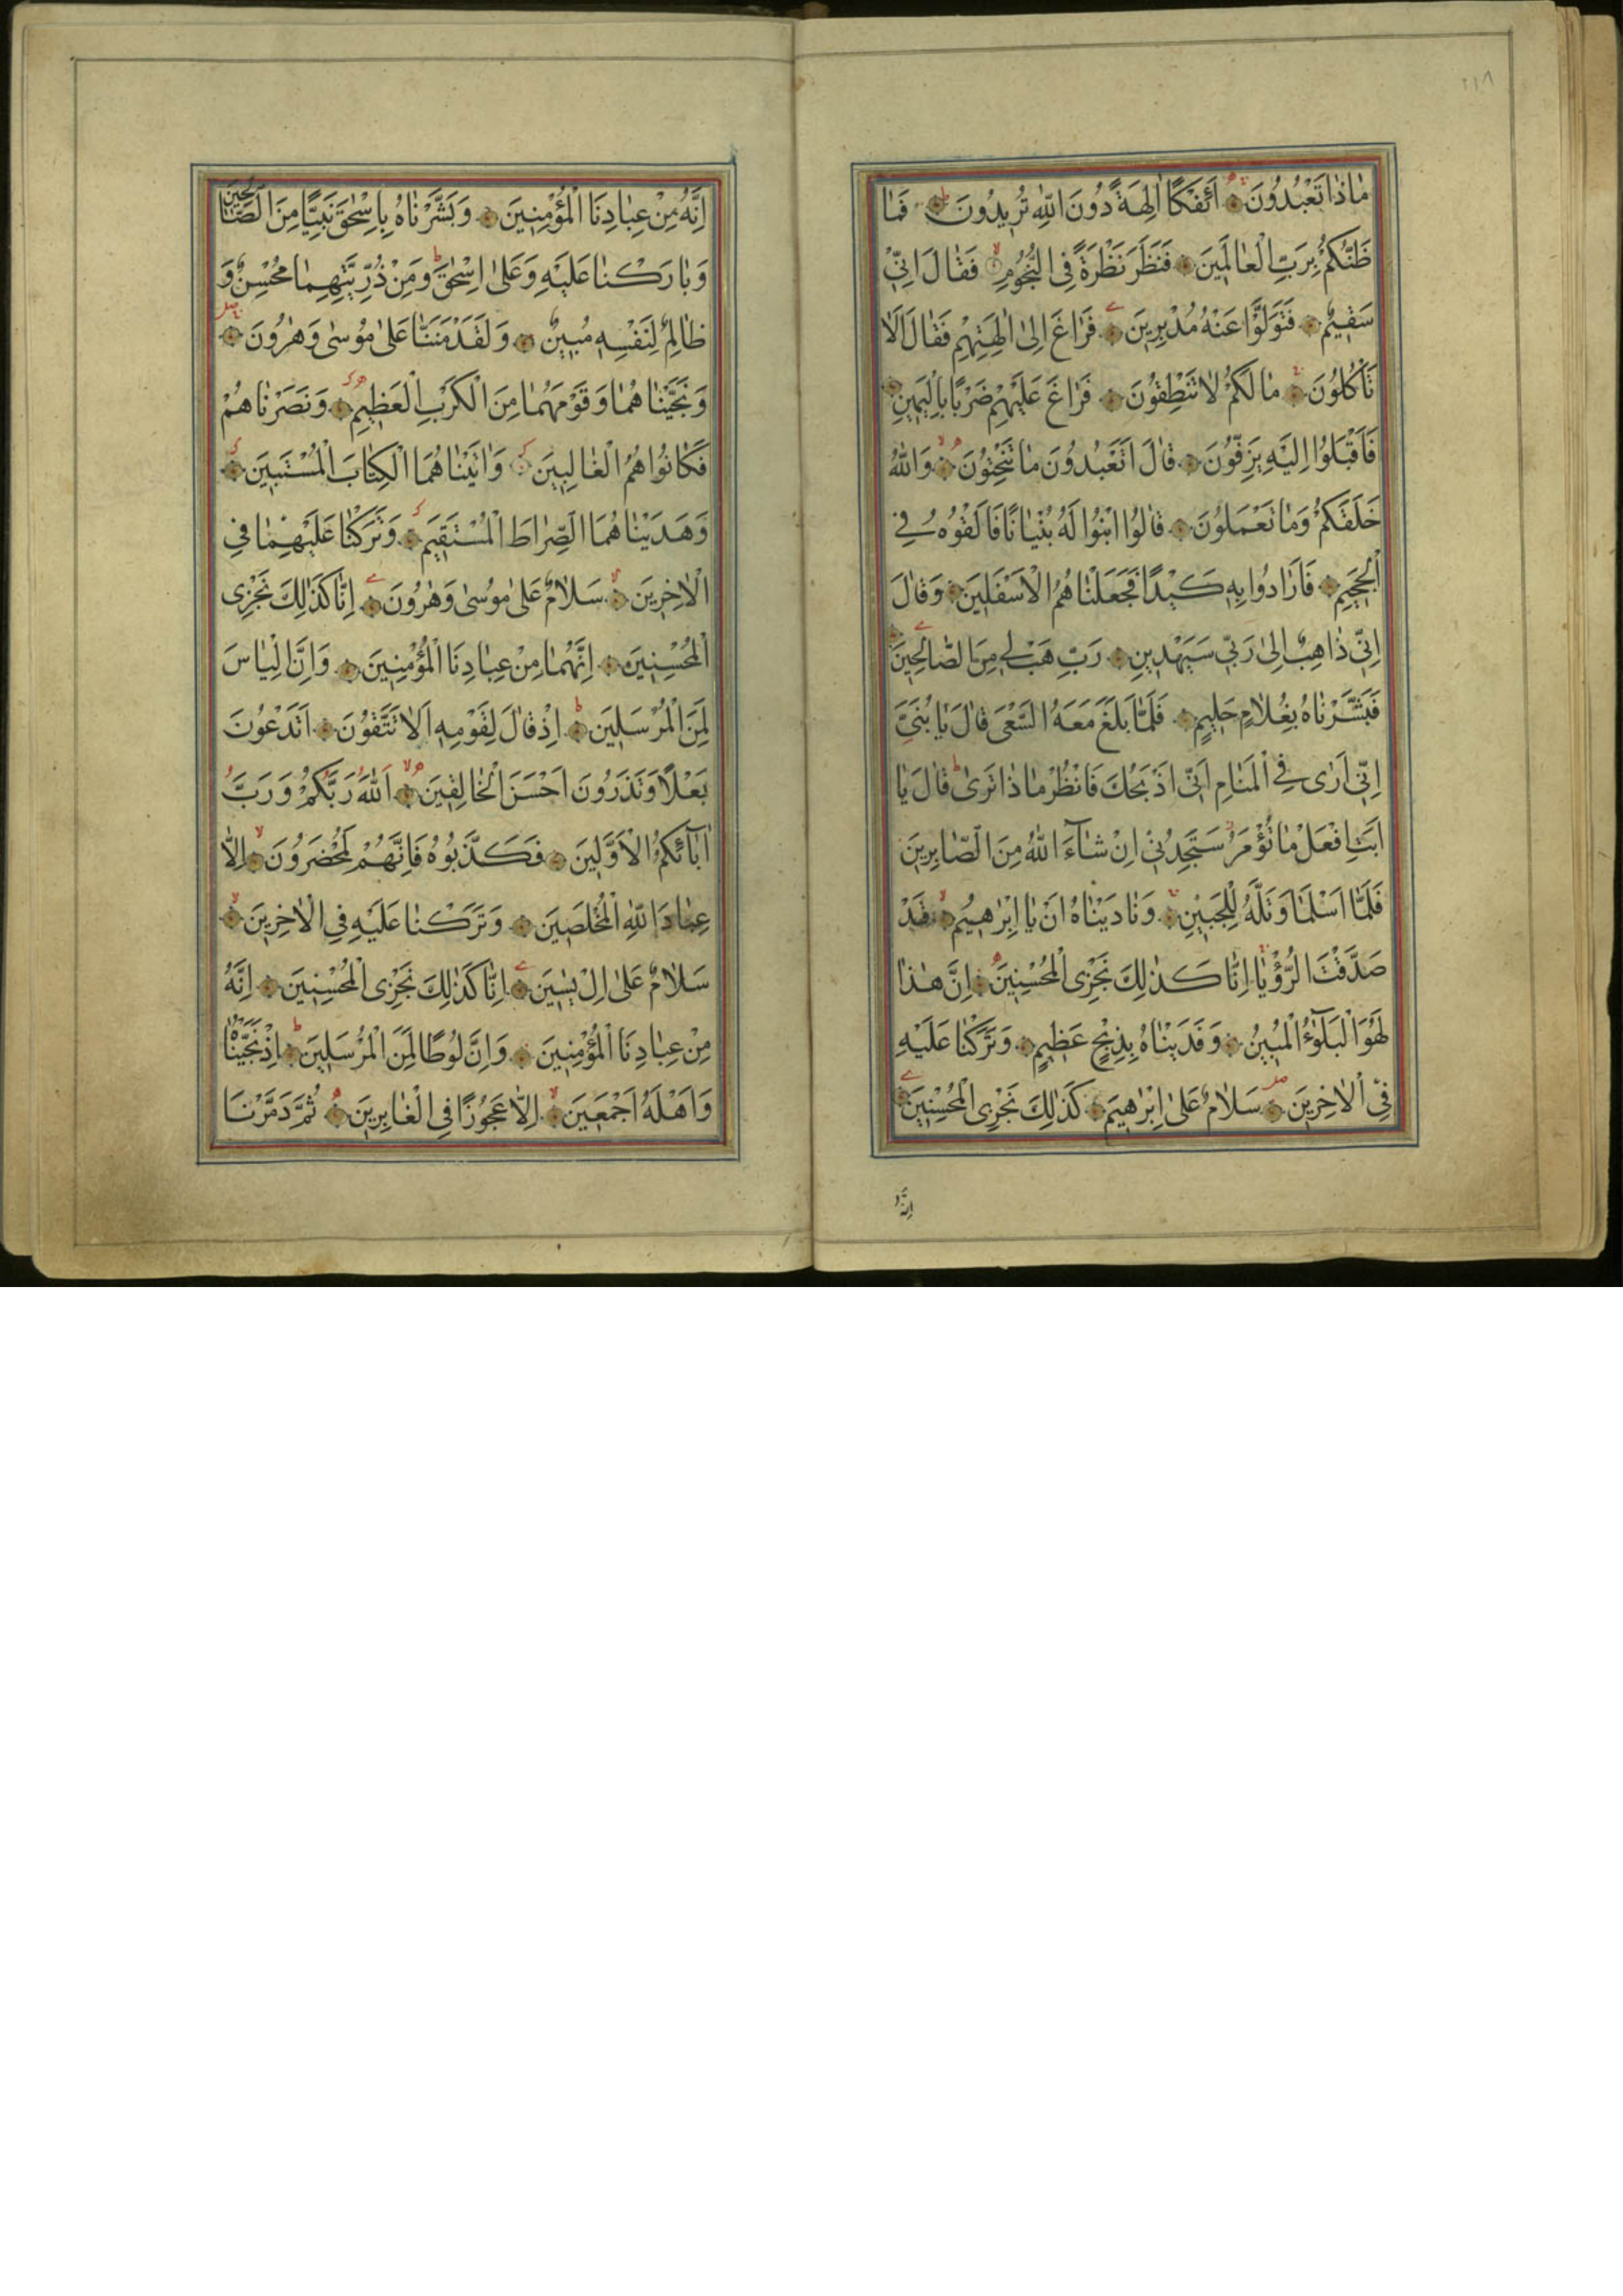 ٢١٨
مٰاذٰا تَعْبُدُونَ ۞ اَئِفْكًا اٰلِهَةً دُونَ اللّٰهِ تُرِيدُونَ ۞ فَمٰا
ظَنُّكُمْ بِرَبِّ الْعٰالَمِينَ ۞ فَنَظَرَ نَظْرَةً فِى النُّجُومِ ۞ فَقٰالَ اِنِّى
سَقِيمٌ ۞ فَتَوَلَّوْا عَنْهُ مُدْبِرِينَ ۞ فَرٰاغَ اِلىٰ اٰلِهَتِهِمْ فَقٰالَ اَلاٰ
تَأْكُلُونَ ۞ مٰا لَكُمْ لاٰ تَنْطِقُونَ ۞ فَرٰاغَ عَلَيْهِمْ ضَرْبًا بِالْيَمِينِ ۞
فَاَقْبَلُوا اِلَيْهِ يَزِفُّونَ ۞ قٰالَ اَتَعْبُدُونَ مٰا تَنْحِتُونَ ۞ وَاللّٰهُ
خَلَقَكُمْ وَمٰا تَعْمَلُونَ ۞ قٰالُوا ابْنُوا لَهُ بُنْيٰانًا فَاَلْقُوهُ فِى
الْجَحِيمِ ۞ فَاَرٰادُوا بِهِ كَيْدًا فَجَعَلْنٰاهُمُ الْاَسْفَلِينَ ۞ وَقٰالَ
اِنِّى ذٰاهِبٌ اِلىٰ رَبِّى سَيَهْدِينِ ۞ رَبِّ هَبْ لِى مِنَ الصّٰالِحِينَ ۞
فَبَشَّرْنٰاهُ بِغُلاٰمٍ حَلِيمٍ ۞ فَلَمّٰا بَلَغَ مَعَهُ السَّعْىَ قٰالَ يٰا بُنَىَّ
اِنِّى اَرٰى فِى الْمَنٰامِ اَنِّى اَذْبَحُكَ فَانْظُرْ مٰا ذٰا تَرىٰ قٰالَ يٰا
اَبَتِ افْعَلْ مٰا تُؤْمَرُ سَتَجِدُنِى اِنْ شٰاۤءَ اللّٰهُ مِنَ الصّٰابِرِينَ
فَلَمّٰا اَسْلَمٰا وَتَلَّهُ لِلْجَبِينِ ۞ وَنٰادَيْنٰاهُ اَنْ يٰا اِبْرٰهِيمُ ۞ قَدْ
صَدَّقْتَ الرُّؤْيٰا اِنّٰا كَذٰلِكَ نَجْزِى الْمُحْسِنِينَ ۞ اِنَّ هٰذٰا
لَهُوَ الْبَلٰۤوءُ الْمُبِينُ ۞ وَفَدَيْنٰاهُ بِذِبْحٍ عَظِيمٍ ۞ وَتَرَكْنٰا عَلَيْهِ
فِى الْاٰخِرِينَ ۞ سَلاٰمٌ عَلىٰ اِبْرٰهِيمَ ۞ كَذٰلِكَ نَجْزِى الْمُحْسِنِينَ ۞
اِنَّهُ
اِنَّهُ مِنْ عِبٰادِنَا الْمُؤْمِنِينَ ۞ وَبَشَّرْنٰاهُ بِاِسْحٰقَ نَبِيًّا مِنَ الصّٰالِحِينَ
وَبٰارَكْنٰا عَلَيْهِ وَعَلىٰ اِسْحٰقَ وَمِنْ ذُرِّيَّتِهِمٰا مُحْسِنٌ وَ
ظٰالِمٌ لِنَفْسِهِ مُبِينٌ ۞ وَلَقَدْ مَنَنّٰا عَلىٰ مُوسٰى وَهٰرُونَ ۞
وَنَجَّيْنٰاهُمٰا وَقَوْمَهُمٰا مِنَ الْكَرْبِ الْعَظِيمِ ۞ وَنَصَرْنٰاهُمْ
فَكٰانُوا هُمُ الْغٰالِبِينَ ۞ وَاٰتَيْنٰاهُمَا الْكِتٰابَ الْمُسْتَبِينَ ۞
وَهَدَيْنٰاهُمَا الصِّرٰاطَ الْمُسْتَقِيمَ ۞ وَتَرَكْنٰا عَلَيْهِمٰا فِى
الْاٰخِرِينَ ۞ سَلاٰمٌ عَلىٰ مُوسىٰ وَهٰرُونَ ۞ اِنّٰا كَذٰلِكَ نَجْزِى
الْمُحْسِنِينَ ۞ اِنَّهُمٰا مِنْ عِبٰادِنَا الْمُؤْمِنِينَ ۞ وَاِنَّ اِلْيٰاسَ
لَمِنَ الْمُرْسَلِينَ ۞ اِذْ قٰالَ لِقَوْمِهِ اَلاٰ تَتَّقُونَ ۞ اَتَدْعُونَ
بَعْلًا وَتَذَرُونَ اَحْسَنَ الْخٰالِقِينَ ۞ اَللّٰهَ رَبَّكُمْ وَرَبَّ
اٰبٰاۤئِكُمُ الْاَوَّلِينَ ۞ فَكَذَّبُوهُ فَاِنَّهُمْ لَمُحْضَرُونَ ۞ اِلّٰا
عِبٰادَ اللّٰهِ الْمُخْلَصِينَ ۞ وَتَرَكْنٰا عَلَيْهِ فِى الْاٰخِرِينَ ۞
سَلاٰمٌ عَلىٰ اِلْ يٰسِينَ ۞ اِنّٰا كَذٰلِكَ نَجْزِى الْمُحْسِنِينَ ۞ اِنَّهُ
مِنْ عِبٰادِنَا الْمُؤْمِنِينَ ۞ وَاِنَّ لُوطًا لَمِنَ الْمُرْسَلِينَ ۞ اِذْ نَجَّيْنٰاهُ
وَاَهْلَهُ اَجْمَعِينَ ۞ اِلّٰا عَجُوزًا فِى الْغٰابِرِينَ ۞ ثُمَّ دَمَّرْنَا